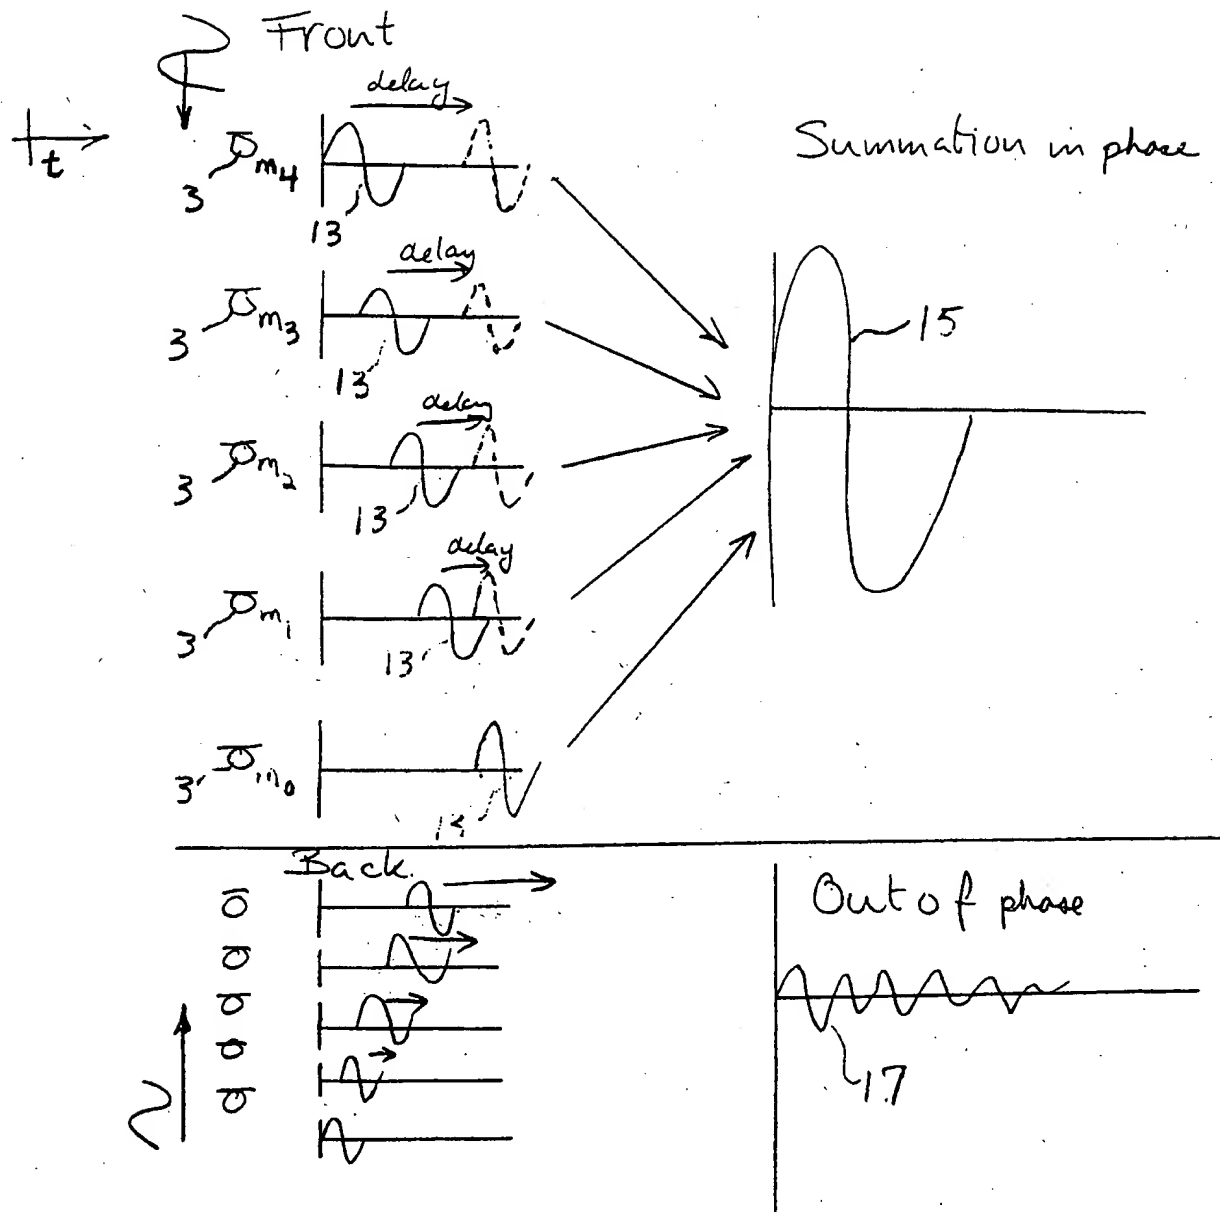 Front
delay
t
Summation in phase
3 m4
13
delay
3 m3
13
15
delay
3 m2
13
delay
3 m1
13
3 m0
Back.
Out of phase
17